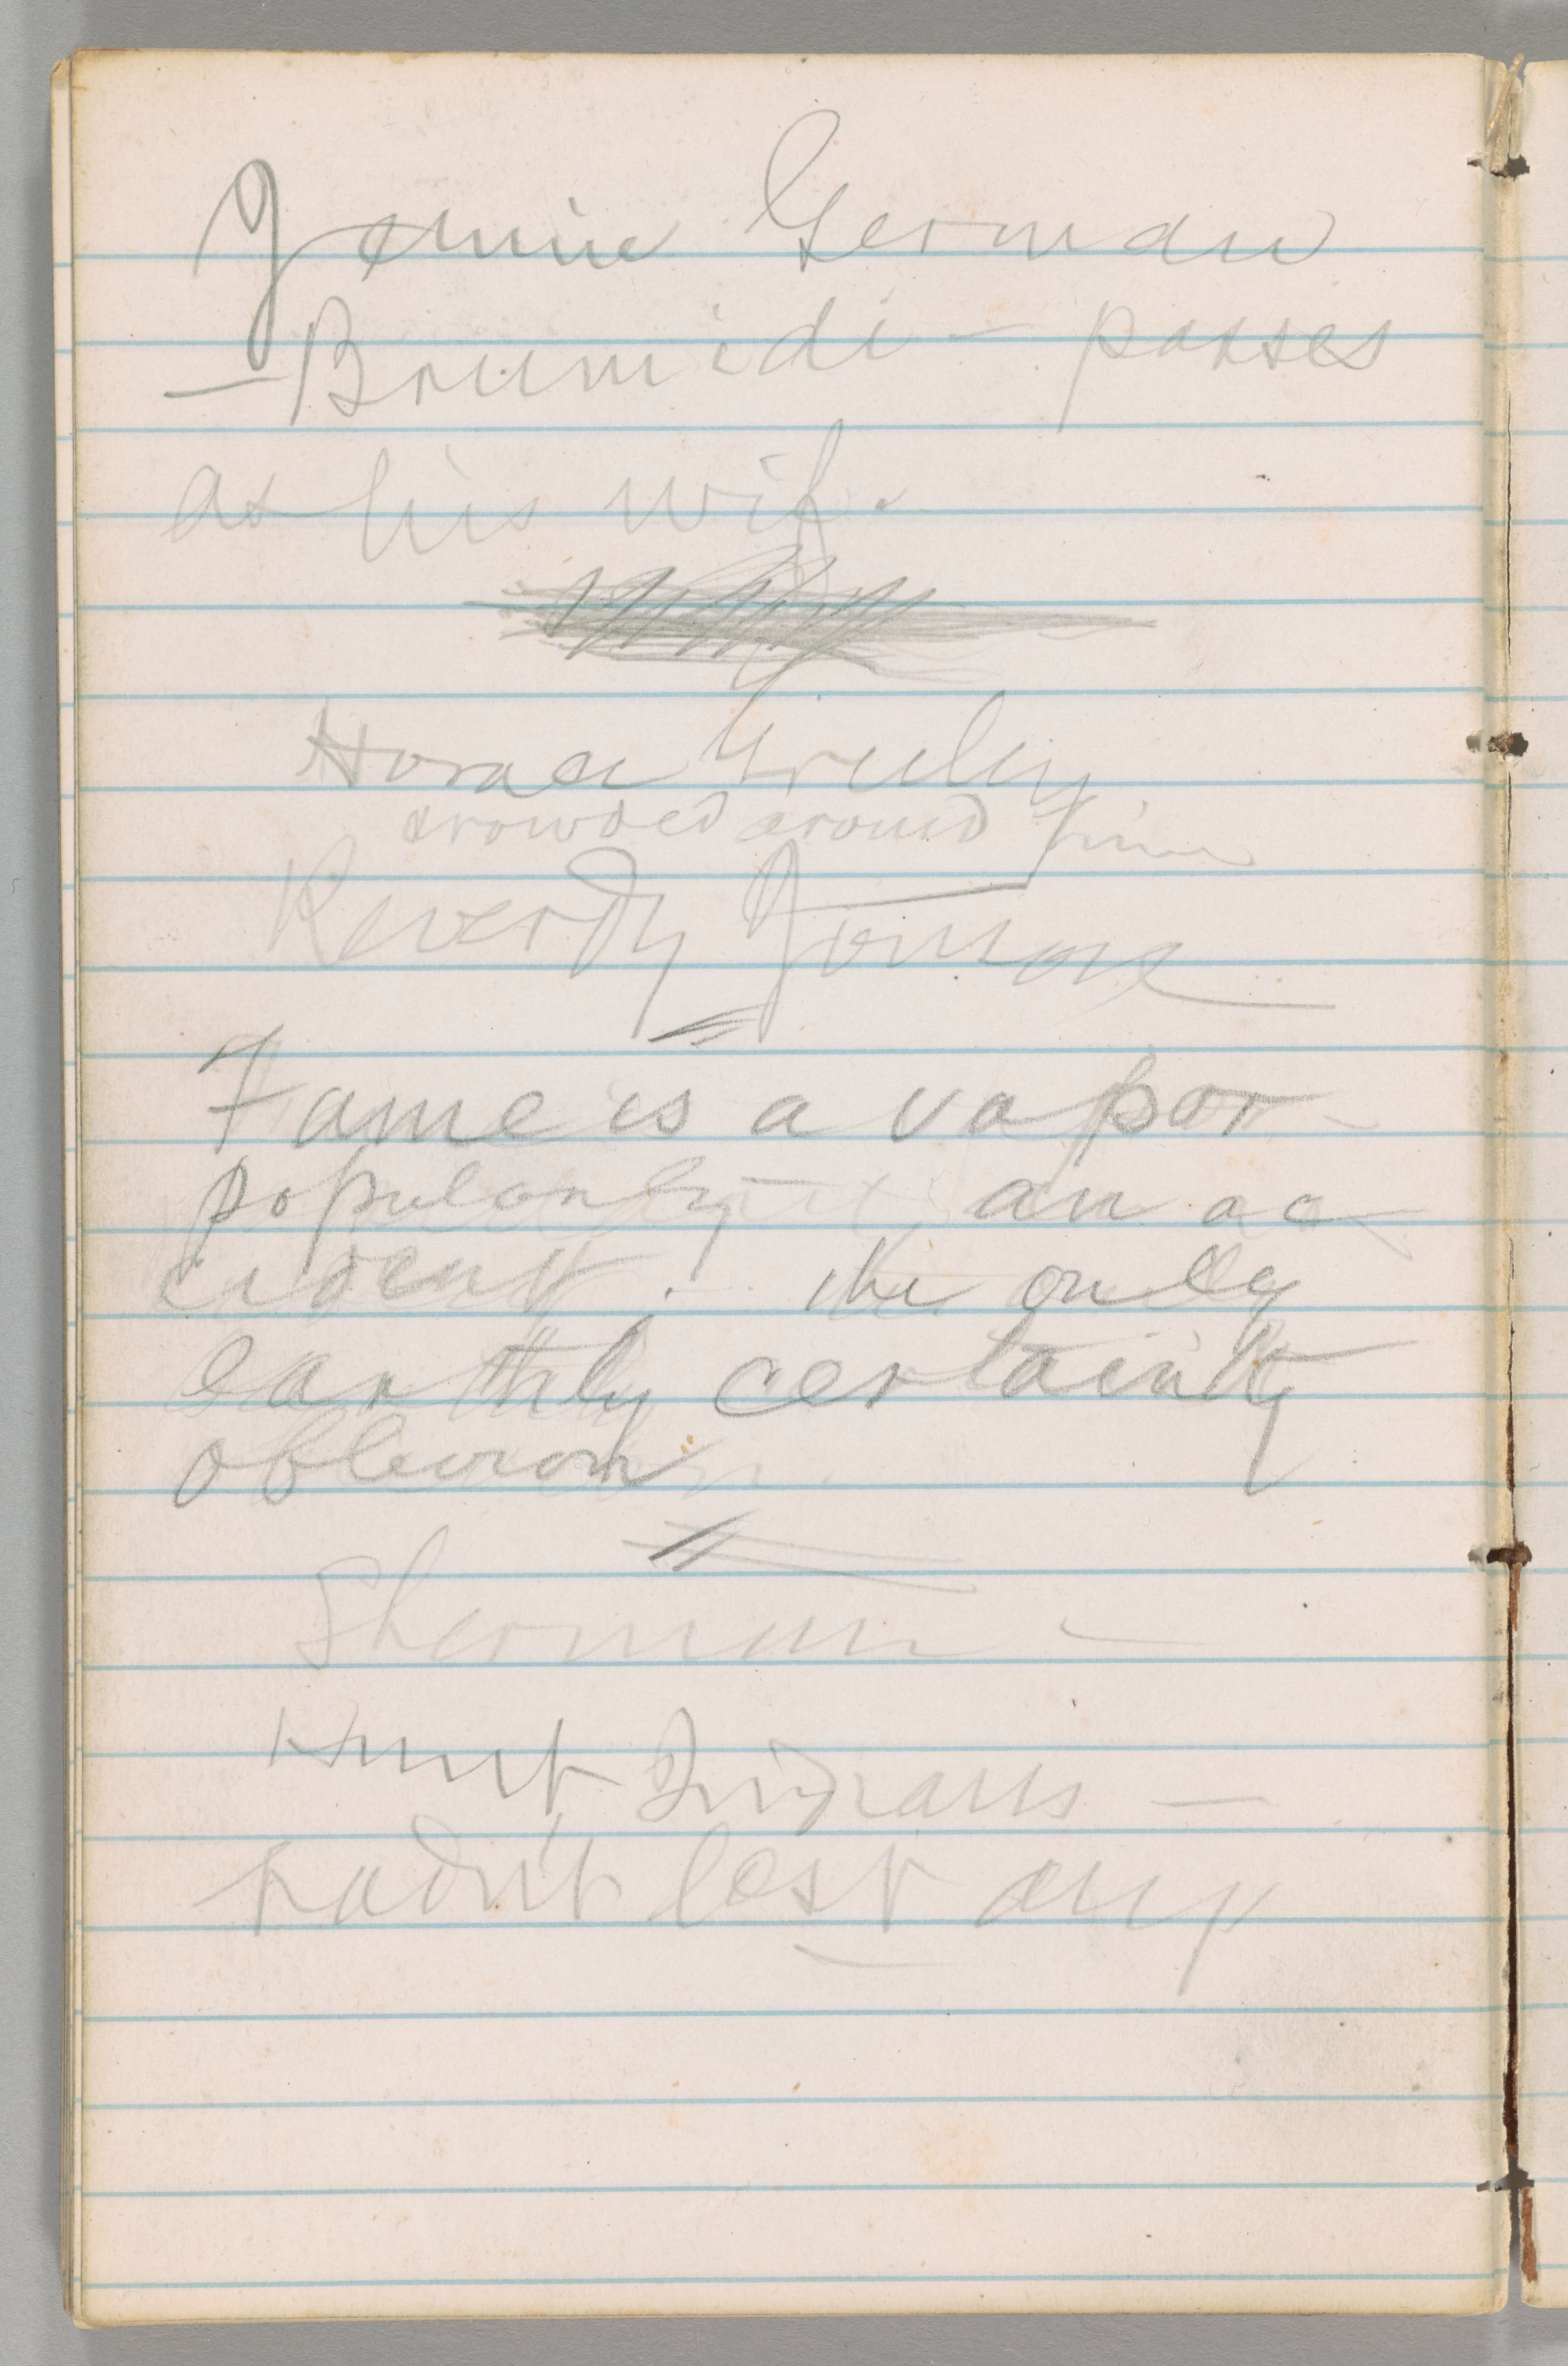 Jennie German
— Brumidi — passes
as his wife.
Horace Greeley
crowded around him
Reverdy Johnson
Fame is a vapor —
popularity — an ac
cident; the only
earthly certainty
oblivion
Sherman —
Hunt Indians —
hadn't lost any